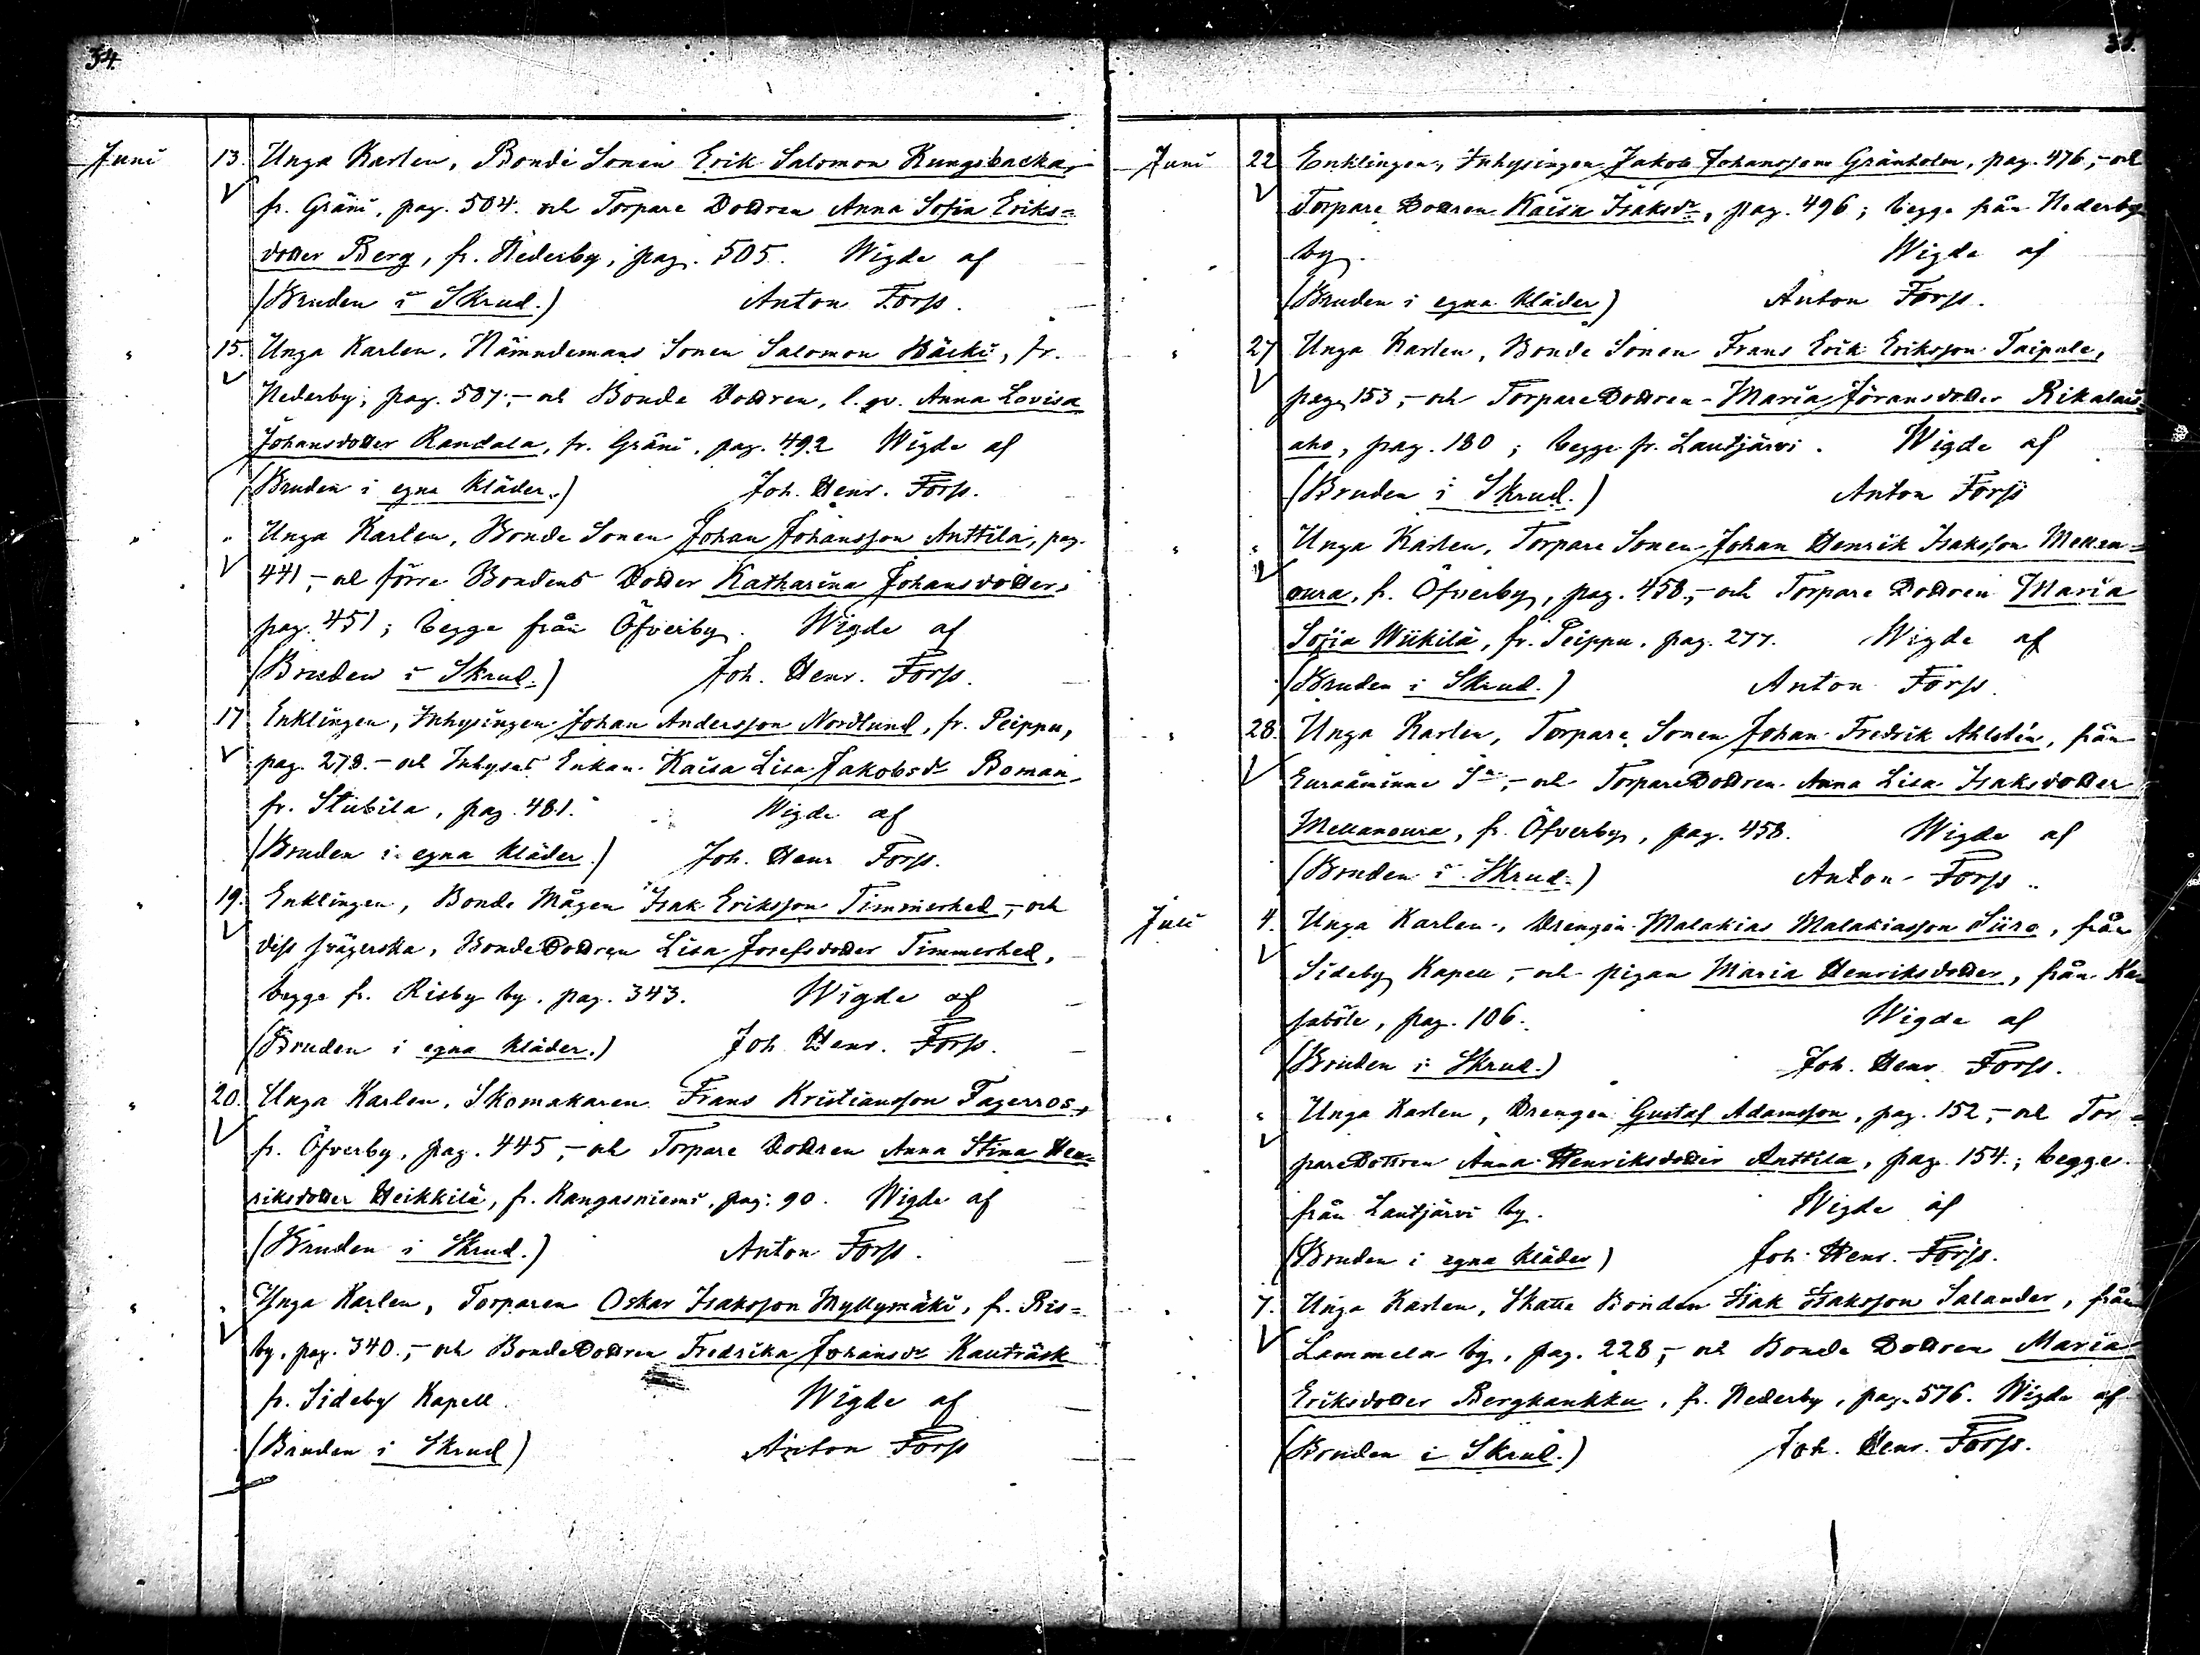 34.
Juni 13. Unga Karlen, Bonde Sonen Erik Salomon Kungsbacka,
fr. Gräni, pag. 504. och Torpare Dottren Anna Sofia Eriks=
dotter Berg, fr. Nederby, pag. 505. Wigde af
(Bruden i Skrud.) Anton Forss.
" 15. Unga Karlen, Nämndemans Sonen Salomon Bäcki, fr.
Nederby, pag. 507;- och Bonde Dottren, l. qv. Anna Lovisa
Johansdotter Randala, fr. Gräni, pag. 492 Wigde af
(Bruden i egna Kläder.) Joh. Henr. Forss.
" " Unga Karlen, Bonde Sonen Johan Johansson Anttila, pag.
441,- och förre Bondens Dotter Katharina Johansdotter,
pag. 451; begge från Öfverby. Wigde af
(Bruden i Skrud.) Joh. Henr. Forss.
" 17 Enklingen, Inhysingen Johan Andersson Nordlund, fr. Peippu,
pag. 278.- och Inhyses Enkan Kaisa Lisa Jakobsdr Boman,
fr. Stubila, pag. 481. Wigde af
(Bruden i egna Kläder.) Joh. Henr Forss.
" 19. Enklingen, Bonde Mågen Isak Eriksson Timmerhed,- och
diss svägerska, Bonde Dottren Lisa Josefsdotter Timmerhed,
begge fr. Risby by, pag. 343. Wigde af
(Bruden i egna Kläder.) Joh Henr. Forss.
" 20. Unga Karlen, Skomakaren Frans Kristiansson Fagerros,
fr. Öfverby, pag. 445,- och Torpare Dottren Anna Stina Hen=
riksdotter Heikkilä, fr. Kangasniemi, pag. 90. Wigde af
(Bruden i Skrud.) Anton Forss.
" " Unga Karlen, Torparen Oskar Isaksson Myllymäki, fr. Ris=
by, pag. 340.,- och Bonde Dottren Fredrika Johansdr Kauträsk
fr. Sideby Kapell. Wigde af
(Bruden i Skrud) Anton Forss
35.
Juni 22 Enklingen, Inhysingen Jakob Johansson Gränholm, pag. 476,- och
Torpare Dottren Kaisa Isaksdr, pag. 496; begge från Nederby
by. Wigde af
(Bruden i egna Kläder) Anton Forss.
" 27 Unga Karlen, Bonde Sonen Frans Erik Eriksson Taipale,
pag. 153,- och Torpare Dottren Maria Jöransdotter Rikalais=
aho, pag. 180; begge fr. Lautjärvi. Wigde af
(Bruden i Skrud.) Anton Forss
" " Unga Karlen, Torpare Sonen Johan Henrik Isaksson Mellan=
oura, fr. Öfverby, pag. 458,- och Torpare Dottren Maria
Sofia Wiikilä, fr. Peippu, pag. 277. Wigde af
(Bruden i Skrud.) Anton Forss.
" 28. Unga Karlen, Torpare Sonen Johan Fredrik Ahlstén, från
Euraåminne Sn,- och Torpare Dottren Anna Lisa Isaksdotter
Mellanoura, fr. Öfverby, pag. 458. Wigde af
(Bruden i Skrud.) Anton Forss.
Juli 4. Unga Karlen, Drengen Malakias Malakiasson Siiro, från
Sideby Kapell,- och pigan Maria Henriksdotter, från Ka=
saböle, pag. 106. Wigde af
(Bruden i Skrud.) Joh. Henr Forss.
" " Unga Karlen, Drengen Gustaf Adamsson, pag. 152,- och Tor=
pare Dottren Anna Henriksdotter Anttila, pag. 154.; begge
från Lautjärvi by. Wigde af
(Bruden i egna Kläder) Joh. Henr. Forss.
" 7. Unga Karlen, Skatte Bonden Isak Isaksson Salander, från
Lammela by, pag. 228,- och Bonde Dottren Maria
Eriksdotter Bergkaukku, fr. Nederby, pag. 576. Wigde af
(Bruden i Skrud.) Joh. Henr. Forss.